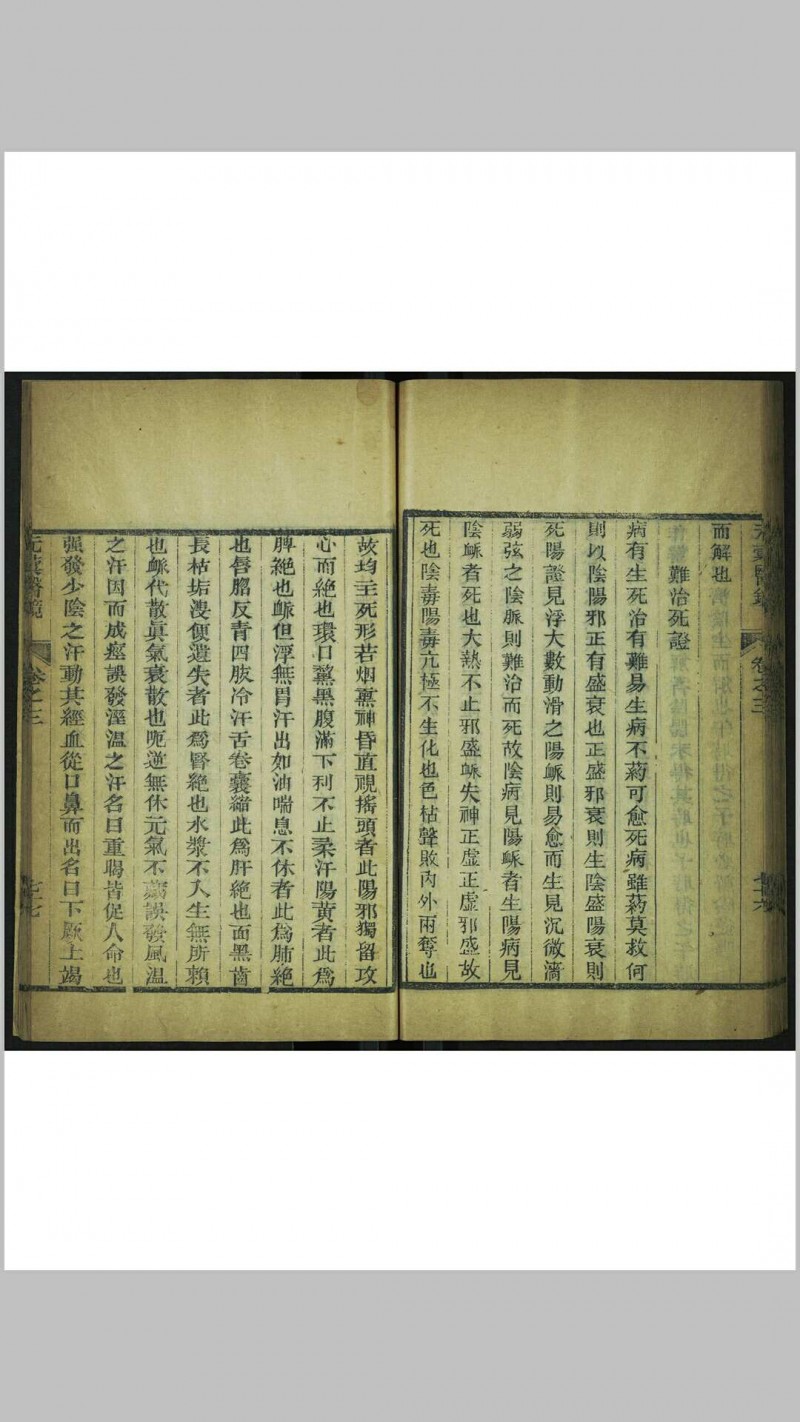 而解也
難治死證
病有生死治有難易生病不葯可愈死病雖葯莫救何
則以陰陽邪正有盛衰也正盛邪衰則生陰盛陽衰則
死陽證見浮大數動滑之陽脈則易愈而生見沉微濇
弱弦之陰脈則難治而死故陰病見陽脈者生陽病見
陰脈者死也大熱不止邪盛脈失神正虛正虛邪盛故
死也陰毒陽毒亢極不生化也色枯聲敗內外兩奪也
卷之三
故均主死形若烟熏神昏直視搖頭者此陽邪獨留攻
心而絶也環口黧黑腹滿下利不止柔汗陽黃者此爲
脾絶也脈但浮無胃汗出如油喘息不休者此爲肺絶
也唇胳反青四肢冷汗舌卷囊縮此爲肝絶也面黑齒
長枯垢溲便遺失者此爲腎絶也水漿不入生無所賴
也脈代散眞氣衰散也呃逆無休元氣不藏誤發風温
之汗因而成痙誤發溼温之汗名曰重暍皆促人命也
强發少陰之汗動其經血從口鼻而出名曰下厥上竭
卷之三